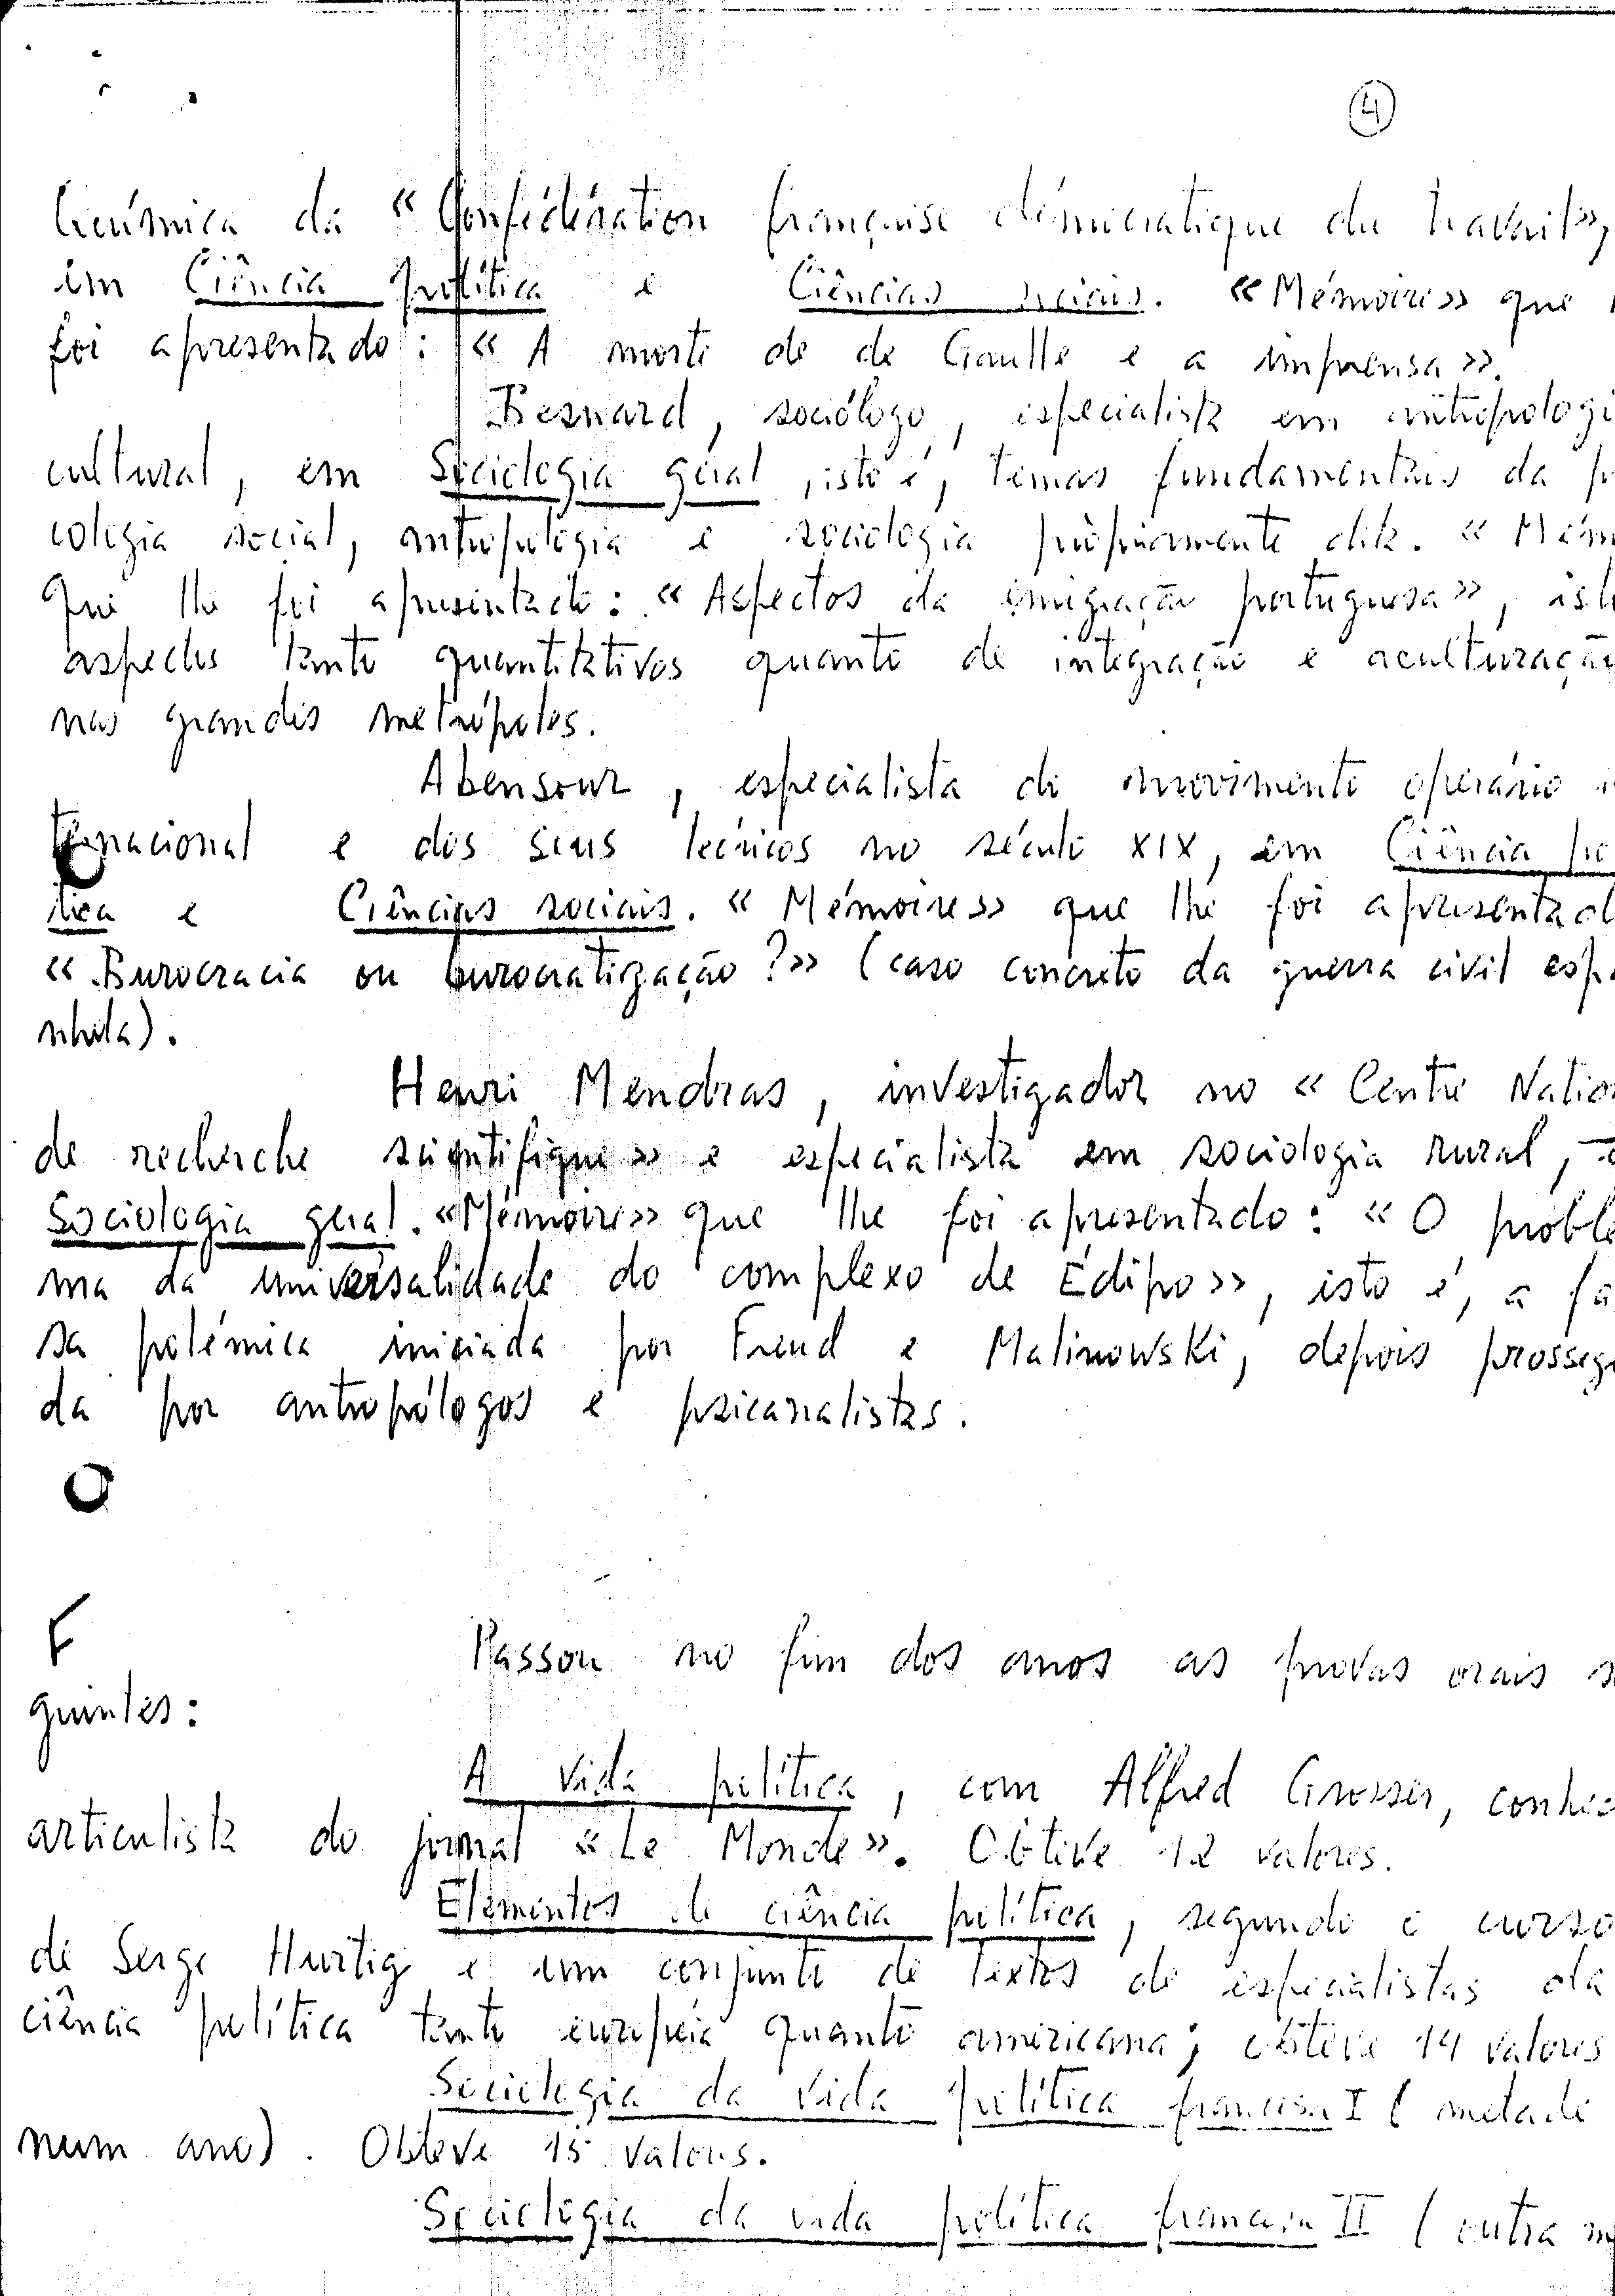 4
química da « Confédération française démocratique du travail»,
em Ciência política e Ciências sociais. «Mémoire» que
foi apresentado: « A morte de de Gaulle e a imprensa».
Besnard, sociólogo, especialista em antropologi
cultural, em Sociologia geral, isto é, temas fundamentais da p
cologia social, antropologia e sociologia pròpriamente dita. « Mém
que lhe foi apresentado: « Aspectos da emigração portuguesa», ist
aspectos tanto quantitativos quanto de integração e aculturação
nas grandes metrópoles.
Abensour, especialista do movimento operário i
ternacional e dos seus teóricos no século XIX, em Ciência po
lítica e Ciências sociais. « Mémoire» que lhe foi apresentad
« Burocracia ou burocratização?» (caso concreto da guerra civil espa
nhola).
Henri Mendras, investigador no « Centre Natio
de recherche scientifique» e especialista em sociologia rural, e
Sociologia geral. «Mémoire» que lhe foi apresentado: « O proble
ma da universalidade do complexo de Édipo», isto é, a fa
sa polémica iniciada por Freud e Malinowski, depois prosseg
da por antropólogos e psicanalistas.
F
Passou no fim dos anos as provas orais s
guintes:
A vida política, com Alfred Grosser, conhec
articulista do jornal «Le Monde». Obteve 12 valores.
Elementos de ciência política, segundo o curso
de Serge Hurtig e um conjunto de textos de especialistas da
ciência política tanto europeia quanto americana; obteve 14 valores
Sociologia da vida política francesa I ( metade
num ano). Obteve 15 valores.
Sociologia da vida política francesa II ( outra m